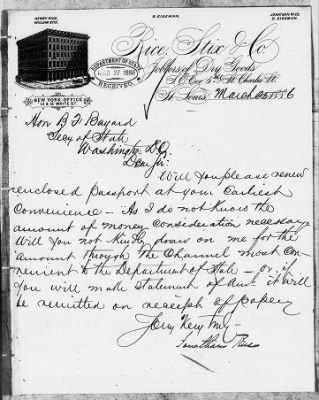 HENRY RICE.
WILLIAM STIX.
B. EISEMAN.
JONATHAN RICE.
D. EISEMAN.
Rice, Stix & Co
Jobbers of Dry Goods
NEW YORK OFFICE
WHITE STREET.
MAR 27 1886
RECEIVED
St Louis, March 25 1886
Hon B. F. Bayard
Secy of State
Washington D.C.
Dear Sir:
Will you please renew
enclosed passport at your earliest
convenience — As I do not know the
amount of money consideration necessary
Will you not kindly draw on me for the
amount through the Channel most con-
venient to the Department of State — or if
you will make statement of amt. it will
be remitted on receipt of papers
Very Truly
Jonathan Rice